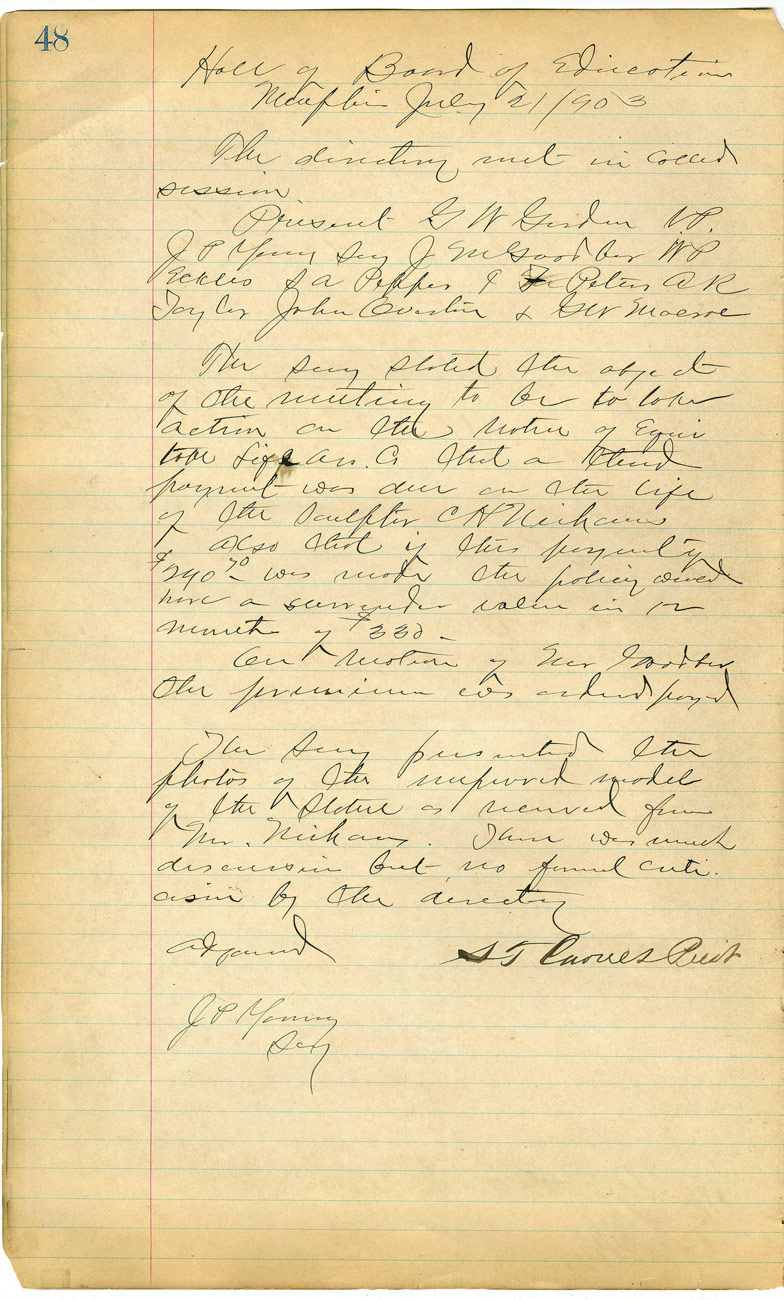 48
Hall of Board of Education
Memphis July 21/1903
The directory met in called
session
Present G W Gordon V.P.
J P Young Secy J M Goodbar W P
Eckles S A Pepper & Peters A R
Taylor John Overton & G W Macrae
The Secy stated the object
of the meeting to be to take
action on the notice of Equi
table Life Ass. Co that a third
payment was due on the life
of the Sculptor C H Niehaus
Also that if this payment of
$290 70 was made the policy would
have a surrender value in 12
months of $330 -
On motion of Mr Goodbar
the premium was ordered payed
The Secy presented the
photos of the improved model
of the Statue as received from
Mr. Niehaus. There was much
discussion but no formal criti
cism by the directory
Adjourned S T Carnes Presdt
J P Young
Secy